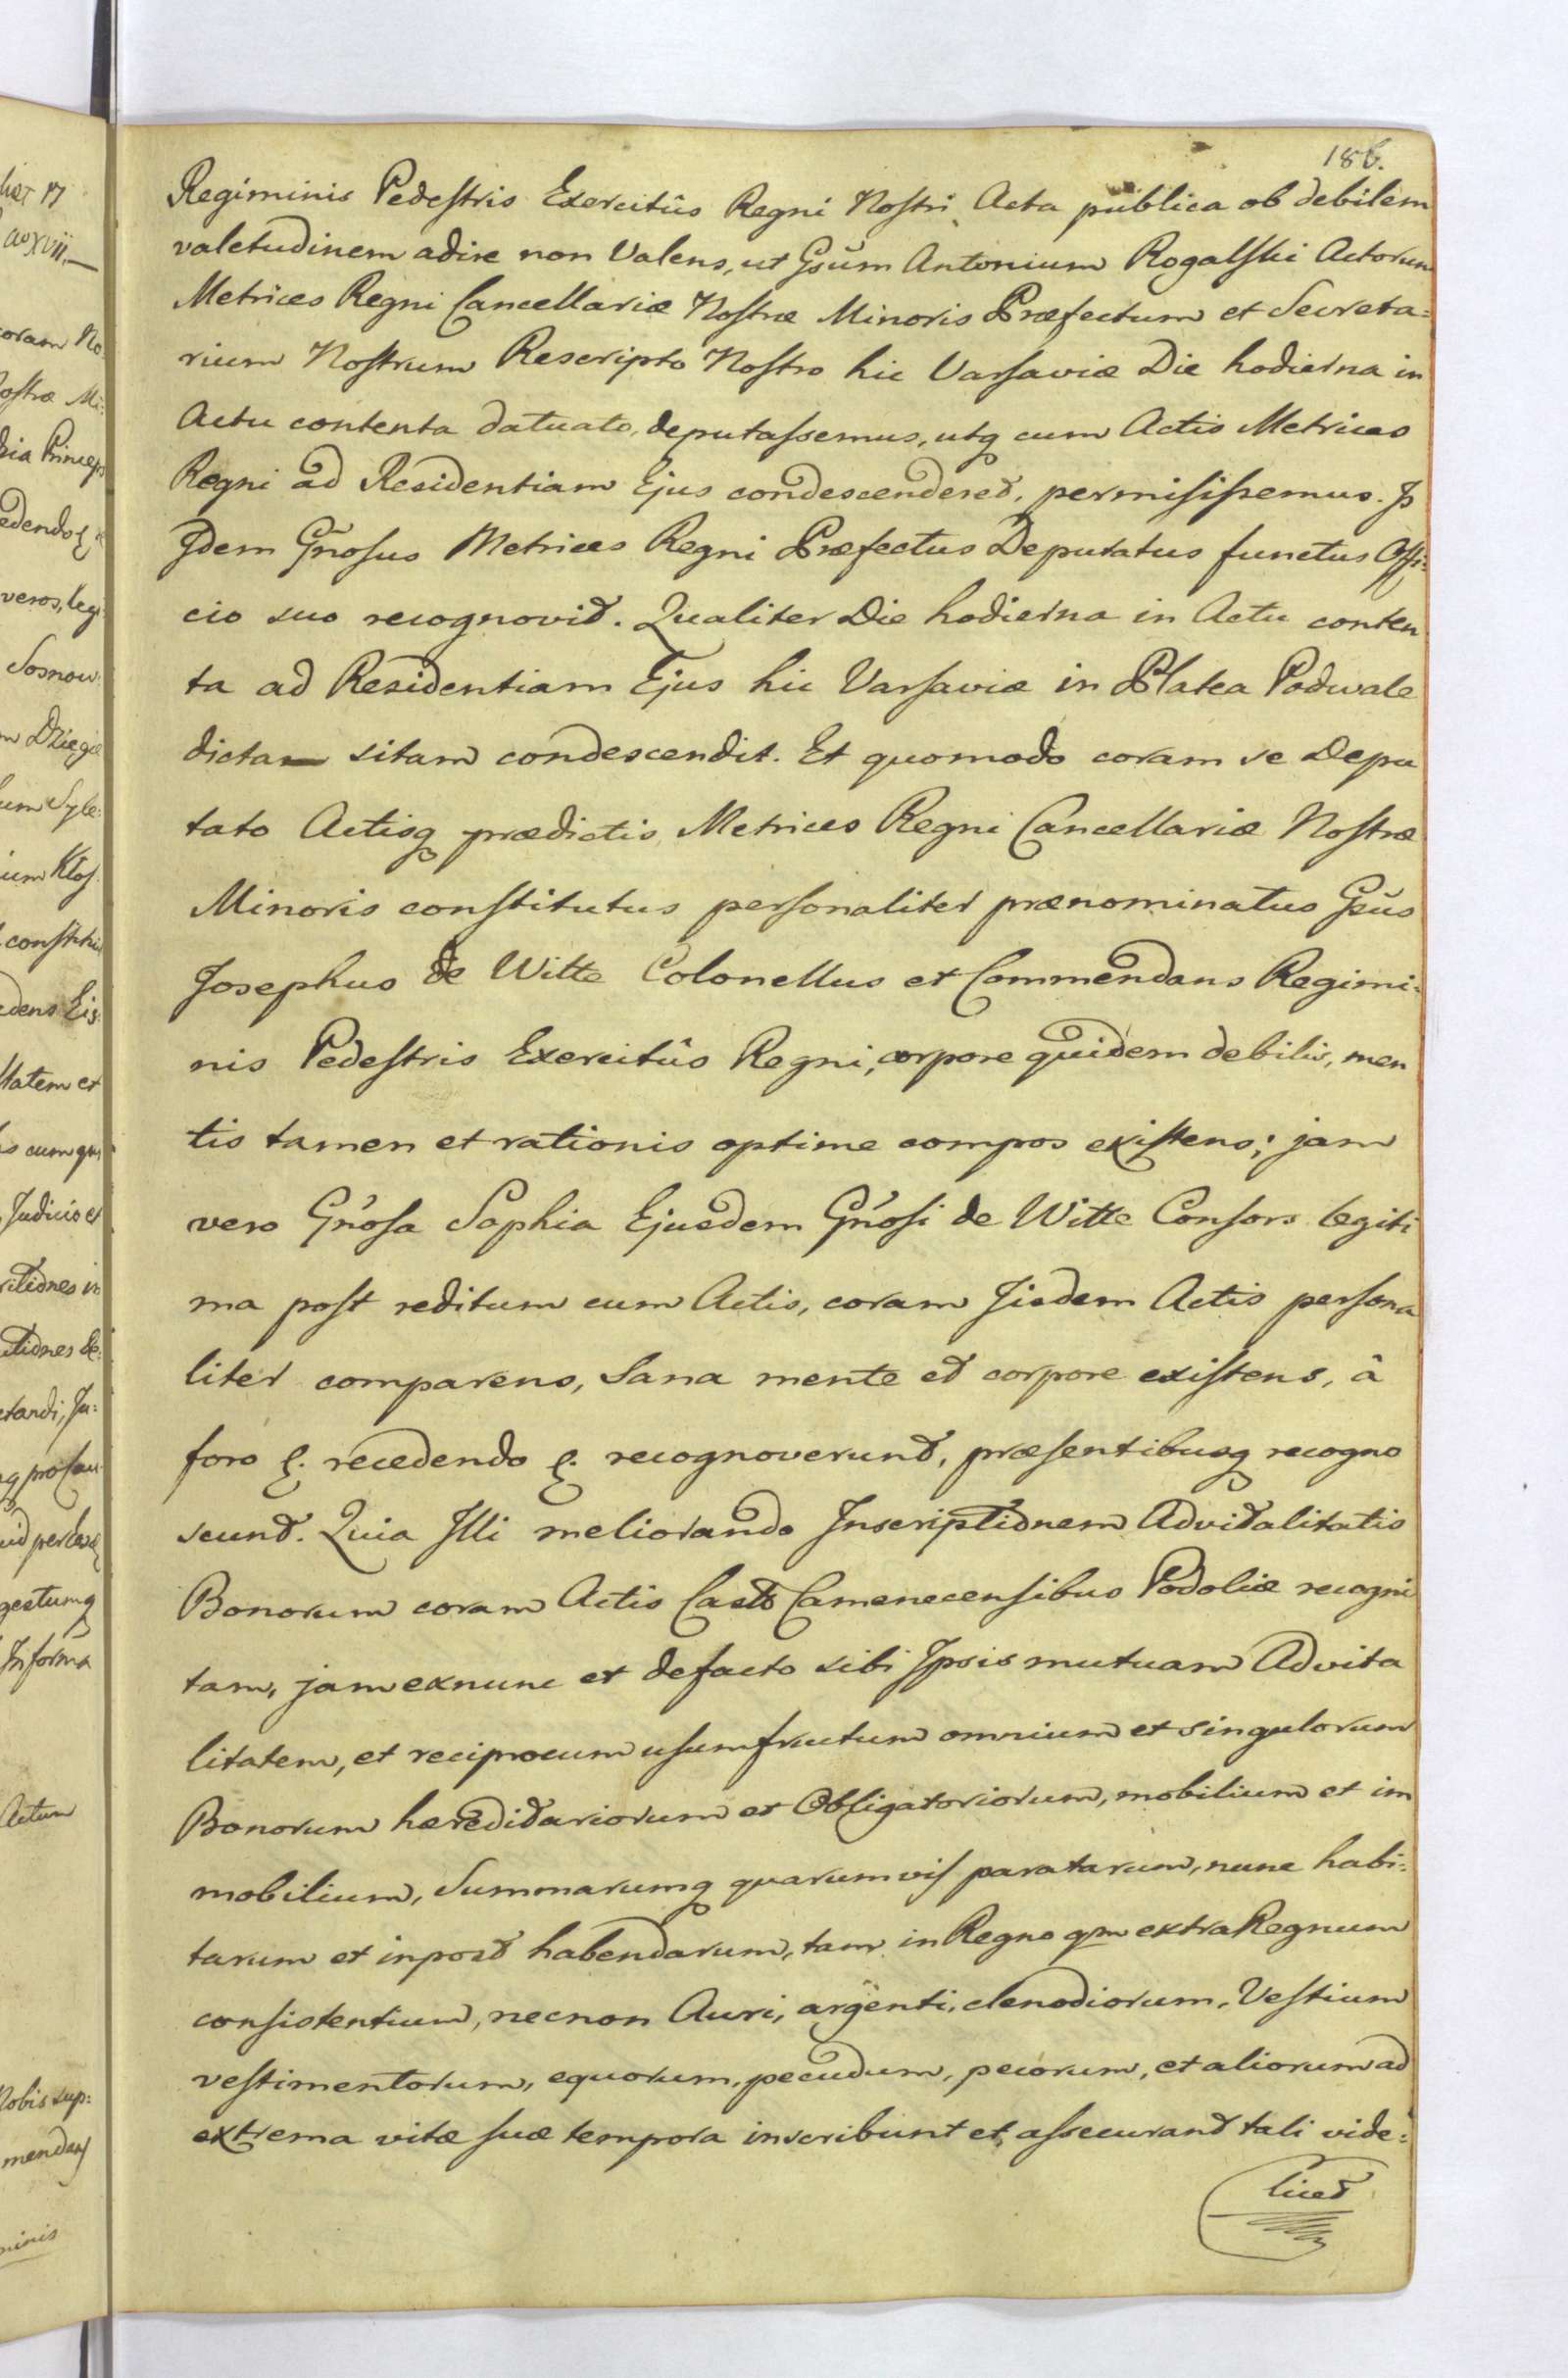 186.
Regiminis Pedestris Exercitûs Regni Nostri Acta publica ob debilem
valetudinem adire non Valens, ut Gsũm Antonium Rogalski Actorum
Metrices Regni Cancellariæ Nostræ Minoris Præfectum et Secreta=
rium Nostrum Rescripto Nostro hic Varsaviæ Die hodierna in
Actu contenta datuato, deputassemus, utq cum Actis Metrices
Regni ad Residentiam Ejus condescenderet, permisissemus. Is
Idem Gñosus Metrices Regni Præfectus Deputatus functus Offi=
cio suo recognovit. Qualiter Die hodierna in Actu conten
ta ad Residentiam Ejus hic Varsaviæ in Platea Podwale
dicta sitam condescendit. Et quomodo coram se Depu
tato Actisq prædictis Metrices Regni Cancellariæ Nostræ
Minoris constitutus personaliter prænominatus Gsũs
Josephus de Witte Colonellus et Commendans Regimi=
nis Pedestris Exercitûs Regni, corpore quidem debilis, men
tis tamen et rationis optime compos existens; jam
vero Gñosa Sophia Ejusdem Gñosi de Witte Consors legiti
ma post reditum cum Actis, coram Iisdem Actis persona
liter comparens, Sana mente et corpore existens, â
foro &. recedendo &. recognoverunt, præsentibusq recogno
scunt. Quia Illi meliorando Inscriptionem Advitalitatis
Bonorum coram Actis Castr Camenecensibus Podoliæ recogni
tam, jam exnunc et defacto sibi Ipsis mutuam Advita
litatem, et reciprocum usumfructum omnium et singulorum
Bonorum hæreditariorum et Obligatoriorum, mobilium et im
mobilium, Summarumq quarumvis paratarum, nunc habi=
tarum et inpost habendarum, tam in Regno qm extra Regnum
consistentium, necnon Auri, argenti, clenodiorum, Vestium
vestimentorum, equorum, pecudum, pecorum, et aliorum ad
extrema vitæ suæ tempora inscribunt et assecurant tali vide=
licet